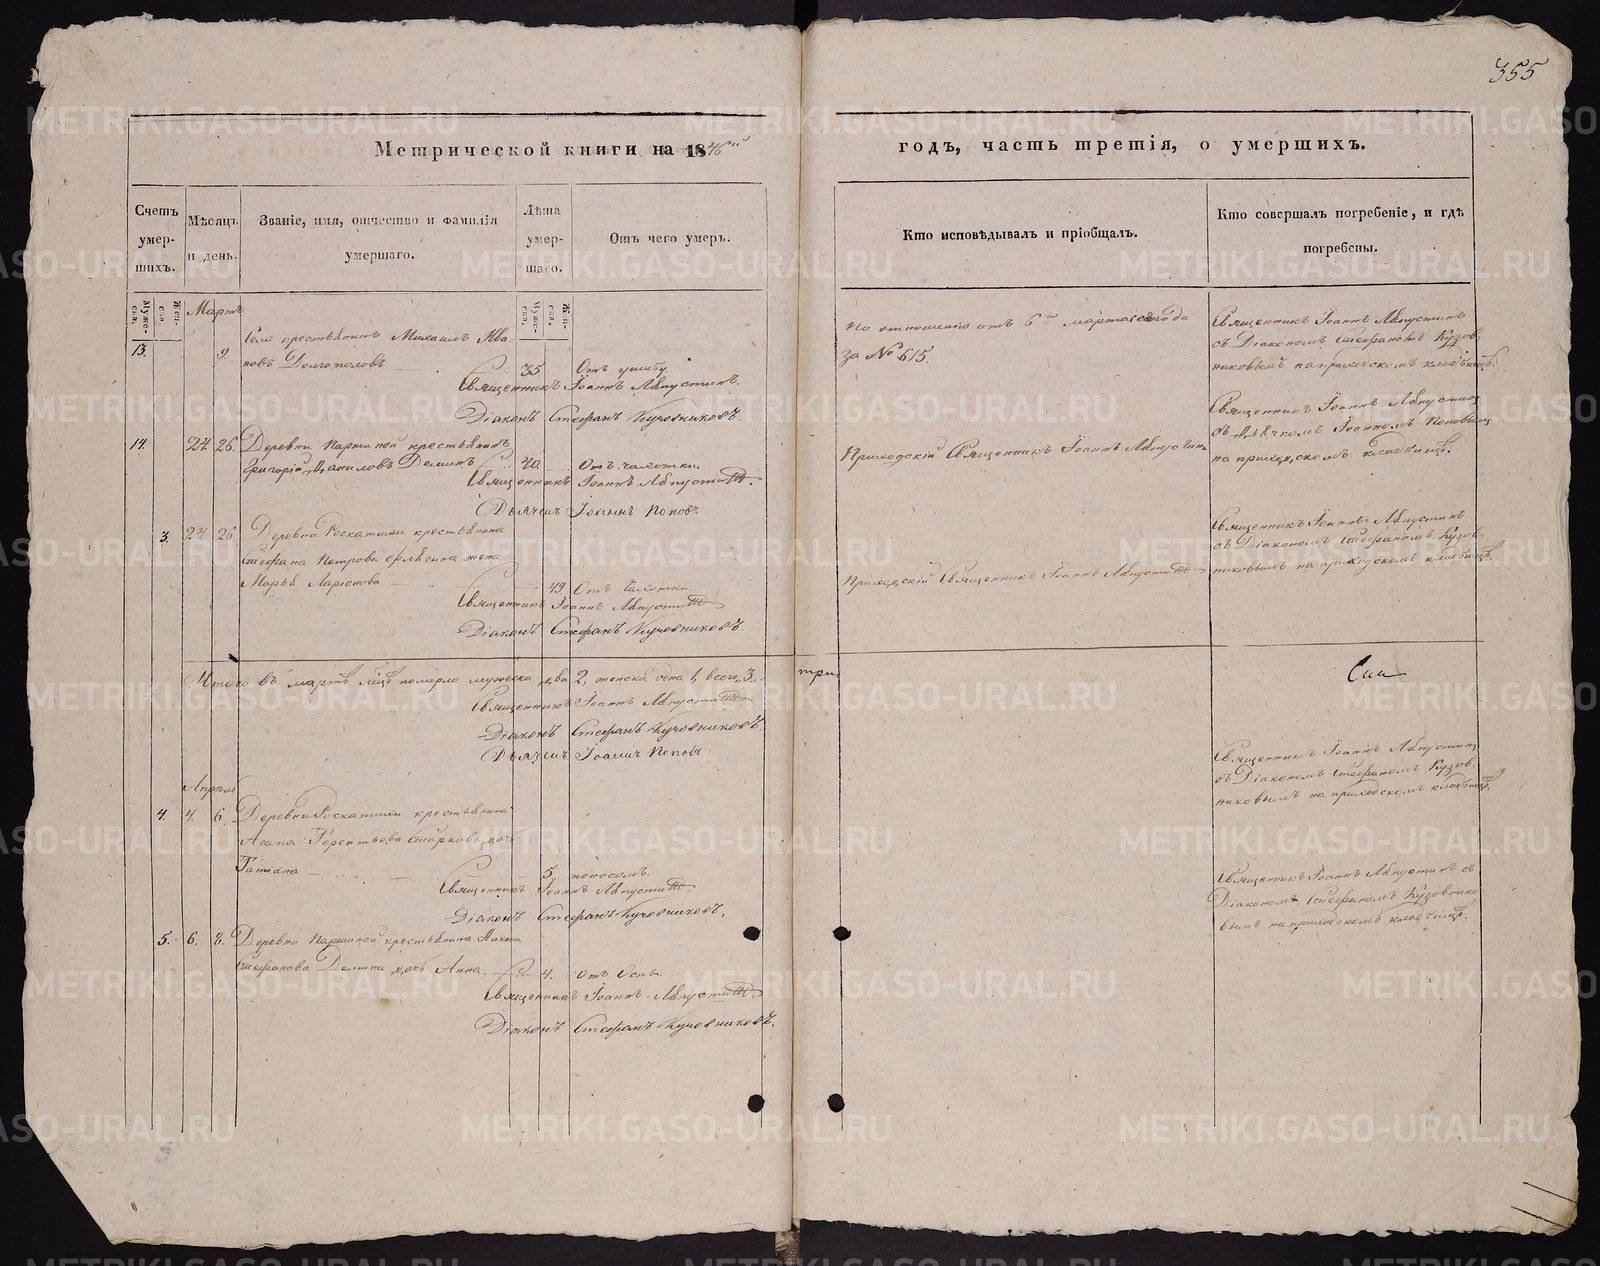 355
Метрической книги на 1846й годъ, часть третія, о умершихъ.
Счетъ умер-шихъ.
Мѣсяцъ и день.
Званіе, имя, отчество и фамилія умершаго.
Лѣта умер-шаго.
Отъ чего умеръ.
Кто исповѣдывалъ и пріобщалъ.
Кто совершалъ погребеніе, и гдѣ погребены.
Муже-ска,
Жен-ска
Муже-ска,
Жен-ска,
Мартъ
13. 9. Села крестьянинъ Михаилъ Ива-
новъ Долгополовъ 35 Отъ ушибу.
Священникъ Іоаннъ Августинъ.
Діаконъ Стефанъ Кузовниковъ
По отношенію отъ 6го марта сего года
за № 615.
Священникъ Іоаннъ Августинъ
съ Діакономъ Стефаномъ Кузов-
никовымъ на приходскомъ кладбищѣ.
14. 24. 26. Деревни Паршиной крестьянинъ
Григорій Даниловъ Деминъ 40. Отъ чахотки.
Священникъ Іоаннъ Августинъ.
Дьячекъ Іоаннъ Поповъ
Приходскій Священникъ Іоаннъ Августинъ
Священникъ Іоаннъ Августинъ
съ дьячкомъ Іоанномъ Поповымъ
на приходскомъ кладбищѣ.
3. 24 26 Деревни Роскатихи крестьянина
Стефана Петрова жена
Марья Ларіонова 49 Отъ чахотки.
Священникъ Іоаннъ Августинъ
Діаконъ Стефанъ Кузовниковъ.
Приходскій Священникъ Іоаннъ Августинъ
Священникъ Іоаннъ Августинъ
съ Діакономъ Стефаномъ Кузов-
никовымъ на приходскомъ кладбищѣ.
Итого въ мартѣ мцѣ померло мужеска два 2, женска одна 1, всего 3. три
Священникъ Іоаннъ Августинъ
Діаконъ Стефанъ Кузовниковъ.
Дьячекъ Іоаннъ Поповъ
Апрѣль
4. 4. 6. Деревни Роскатихи крестьянина
Терентьева дочь
Татіана 5. поносомъ.
Священникъ Іоаннъ Августинъ.
Діаконъ Стефанъ Кузовниковъ.
Священникъ Іоаннъ Августинъ
съ Діакономъ Стефаномъ Кузов-
никовымъ на приходскомъ кладбищѣ.
5. 6. 8. Деревни Паршиной крестьянина
Стефанова Демина дочь Анна. 4. отъ Оспы.
Священникъ Іоаннъ Августинъ.
Діаконъ Стефанъ Кузовниковъ.
Священникъ Іоаннъ Августинъ съ
Діакономъ Стефаномъ Кузовнико-
вымъ на приходскомъ кладбищѣ.
METRIKI.GASO-URAL.RU